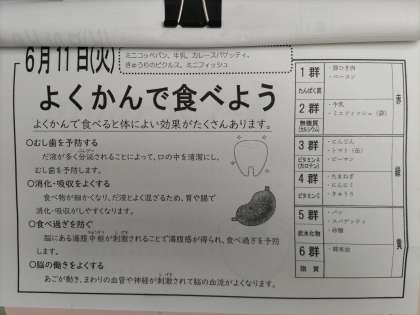 6月11日(火)
ミニコッペパン、牛乳、カレースパゲッティ、
きゅうりのピクルス、ミニフィッシュ
よくかんで食べよう
よくかんで食べると体によい効果がたくさんあります。
○むし歯を予防する
だ液が多く分泌されることによって、口の中を清潔にし、
むし歯を予防します。
○消化・吸収をよくする
食べ物が細かくなり、だ液とよく混ざるため、胃や腸で
消化・吸収がしやすくなります。
○食べ過ぎを防ぐ
脳にある満腹中枢が刺激されることで満腹感が得られ、食べ過ぎを予防
します。
○脳の働きをよくする
あごが動き、まわりの血管や神経が刺激されて脳の血流がよくなります。
1群
たんぱく質
・豚ひき肉
・ベーコン
2群
無機質
(カルシウム)
・牛乳
・ミニフィッシュ(袋)
赤
3群
ビタミンA
(カロテン)
・にんじん
・トマト(缶)
・ピーマン
4群
ビタミンC
・たまねぎ
・にんにく
・きゅうり
緑
5群
炭水化物
・パン
・スパゲティ
・砂糖
6群
脂質
黄